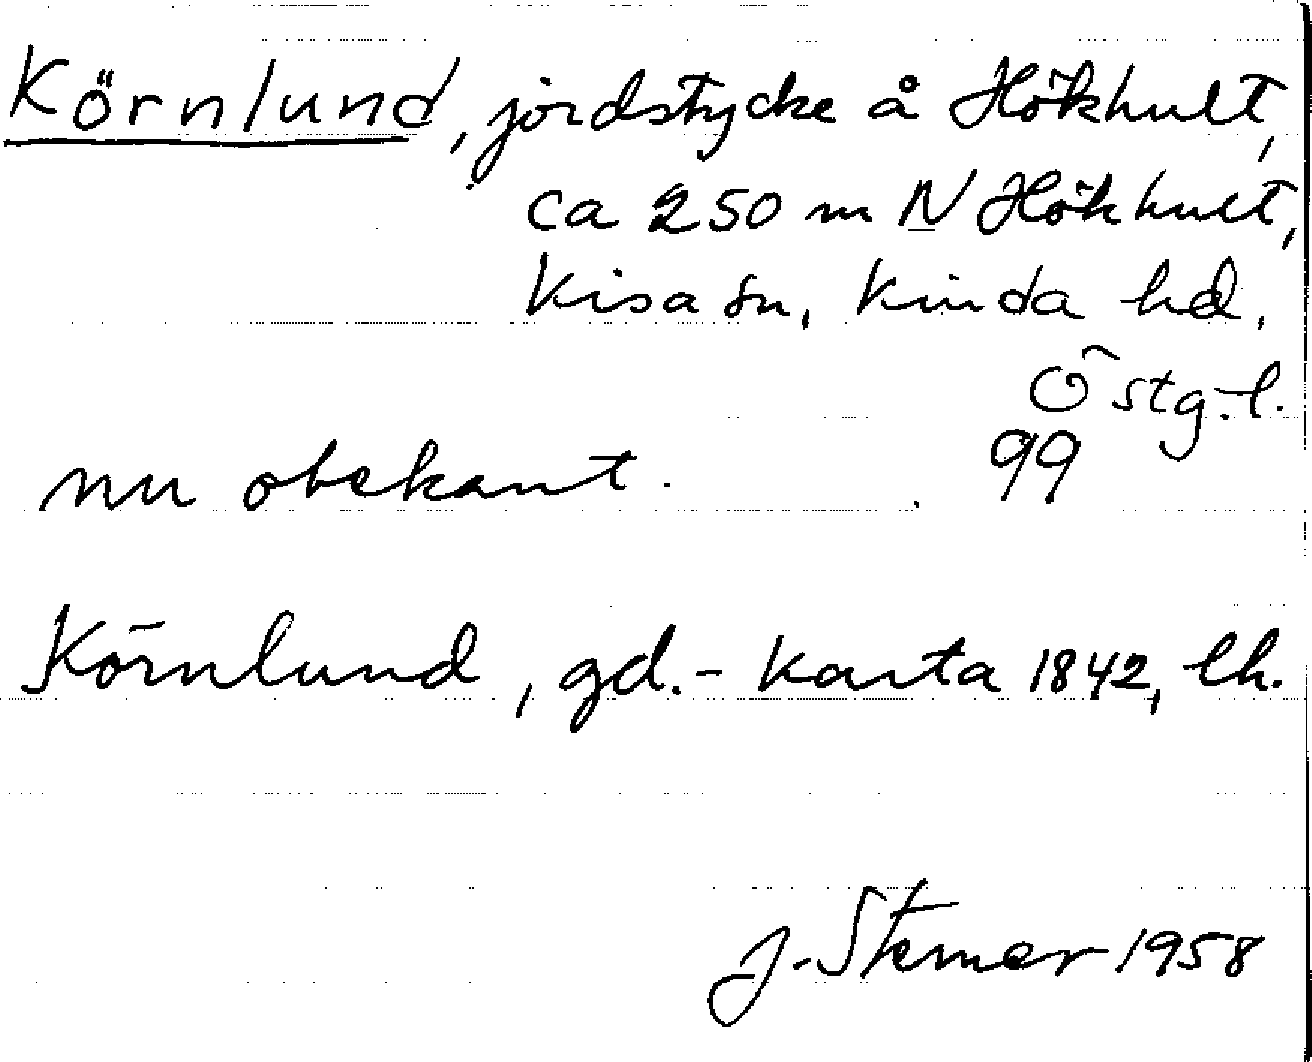 Körnlund, jordstycke å Hökhult,
ca 250 m N Hökhult,
Kisa sn, Kinda hd,
Östg.l.
99
nu obekant.
Körnlund, gd. - Karta 1842, lh.
J. Stemer 1958